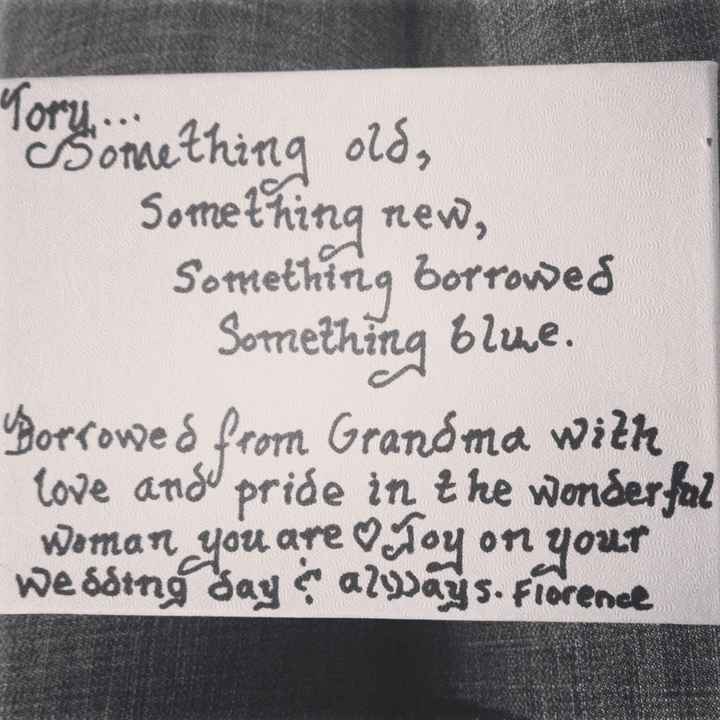 Tory...
Something old,
Something new,
Something borrowed
Something blue.
Borrowed from Grandma with
love and pride in the wonderful
woman you are ♡ Joy on your
wedding day & always. Florence